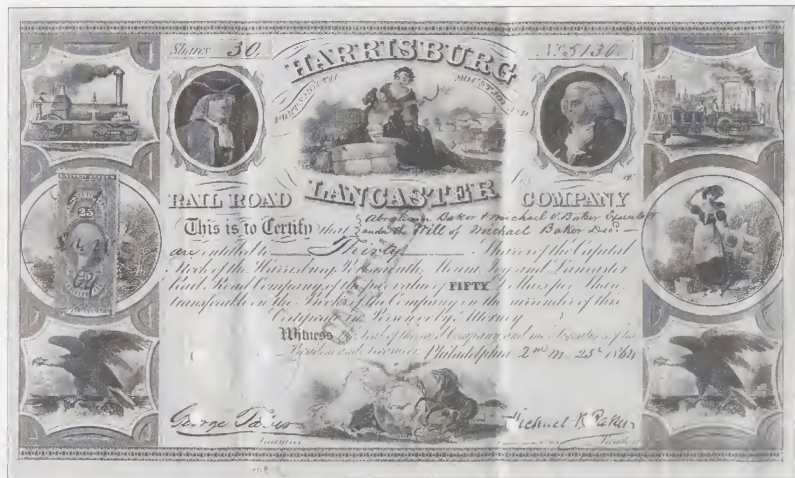 Shares 30.
HARRISBURG
No. 5130.
PORTSMOUTH MOUNT JOY AND
LANCASTER
RAIL ROAD COMPANY
This is to Certify that Abraham Baker & Michael V. Baker Executors
under the Will of Michael Baker Decd.
are entitled to Thirty Shares of the Capital
Stock of the Harrisburg, Portsmouth, Mount Joy and Lancaster
Rail Road Company of the par value of FIFTY Dollars per Share
transferable on the Books of the Company on the surrender of this
Certificate in Person or by Attorney
Witness the Seal of the said Company and the Signatures of the
President and Treasurer. Philadelphia 2nd m 25th 1864
George Treasurer
Michael Baker President
UNITED STATES
25
25